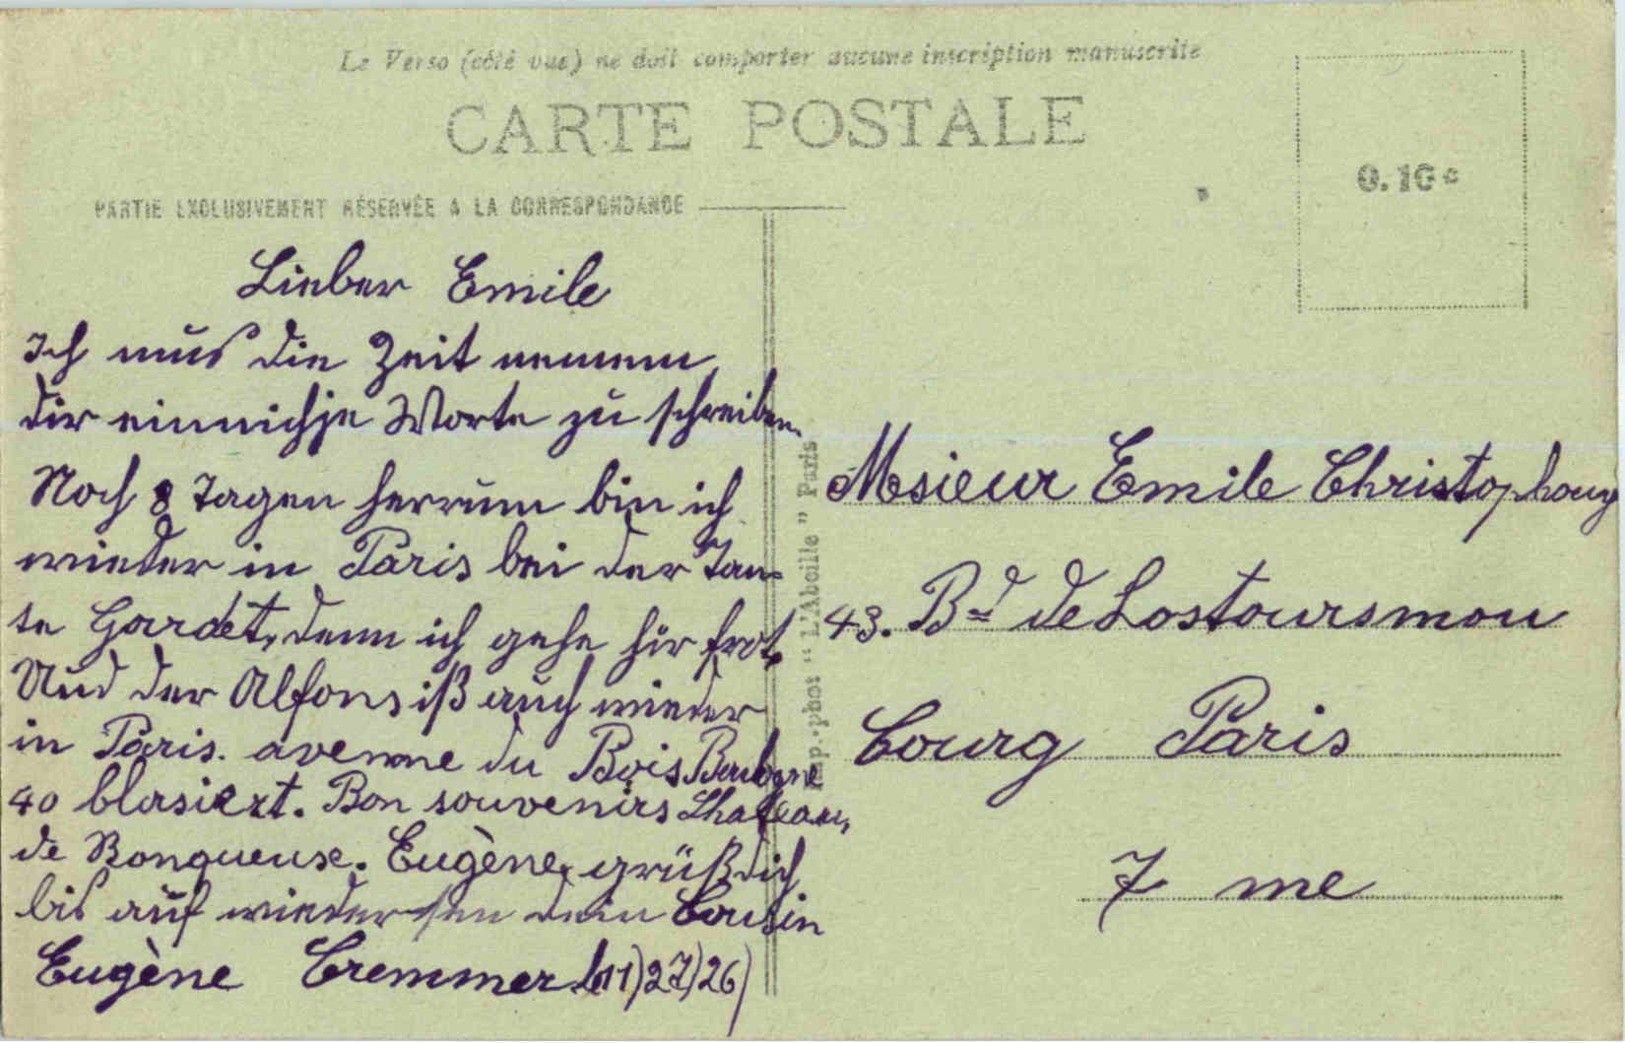 Le Verso (côté vue) ne doit comporter aucune inscription manuscrite
CARTE POSTALE
0.10 c
PARTIE EXCLUSIVEMENT RÉSERVÉE A LA CORRESPONDANCE
Lieber Emile
Ich mus die Zeit nemmen,
dir einnichje Worte zu schreiben.
Noch 8 Tagen herrum bin ich
wieder in Paris bei der Tan-
te Gardet, denn ich gehe hir frot.
Und der Alfons iß auch wieder
in Paris. avenue du Bois Boulogne
40 blasiert. Bon souvenirs
de Ronqueuse. Eugène, grüß dich
bis auf wiedersen dein Cousin
Eugène Cremmer 11)27)26)
Imp.-phot "L'Abeille" Paris
Mesieur Emile Christophony
43. Bd de Lostoursmou
bourg Paris
7 me